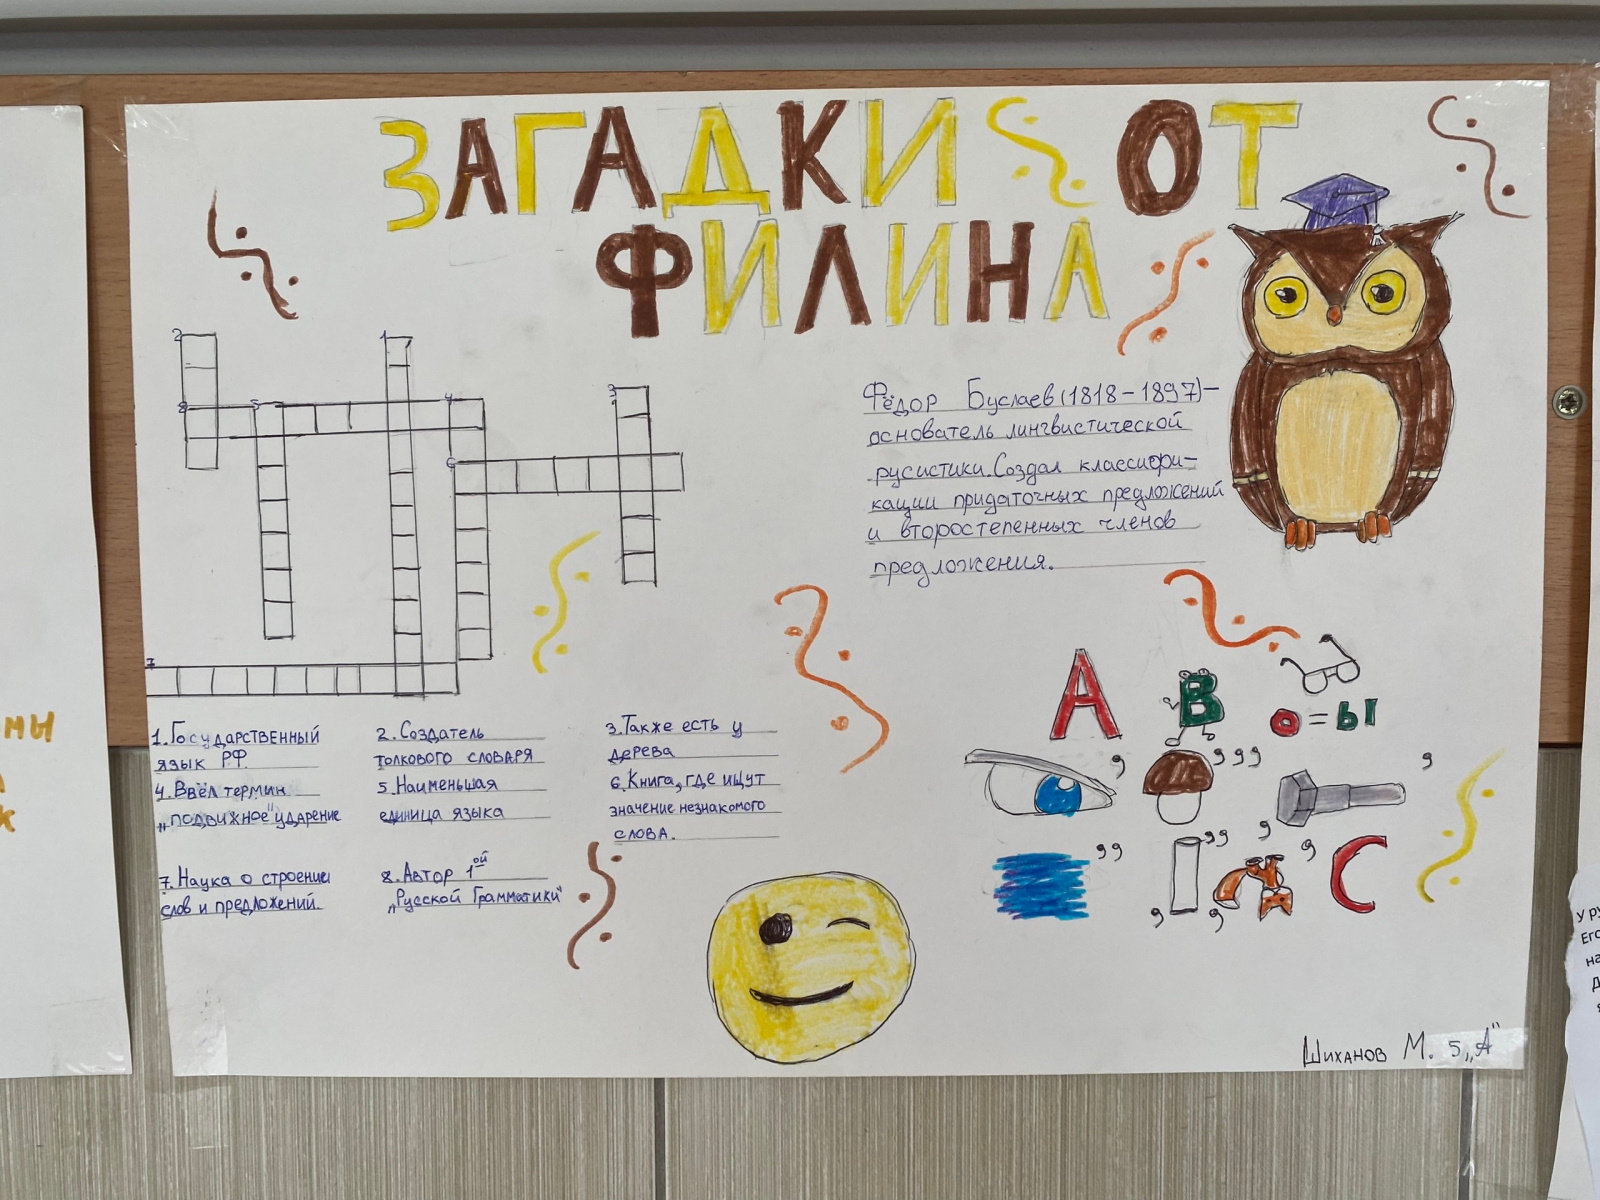 ЗАГАДКИ ОТ
ФИЛИНА
2
1
3
8
5
4
6
7
Фёдор Буслаев (1818-1897)-
основатель лингвистической
русистики. Создал классифи-
кации придаточных предложений
и второстепенных членов
предложения.
1. Государственный
язык РФ
2. Создатель
толкового словаря
3. Также есть у
дерева
4. Ввёл термин
„подвижное" ударение
5. Наименьшая
единица языка
6. Книга, где ищут
значение незнакомого
слова.
7. Наука о строении
слов и предложений.
8. Автор 1ой
„Русской Грамматики"
А В о=ы
, ,,, ,
,, , ,, , , , С
Шиханов М. 5„А"
мы
к
У ру
Его
на